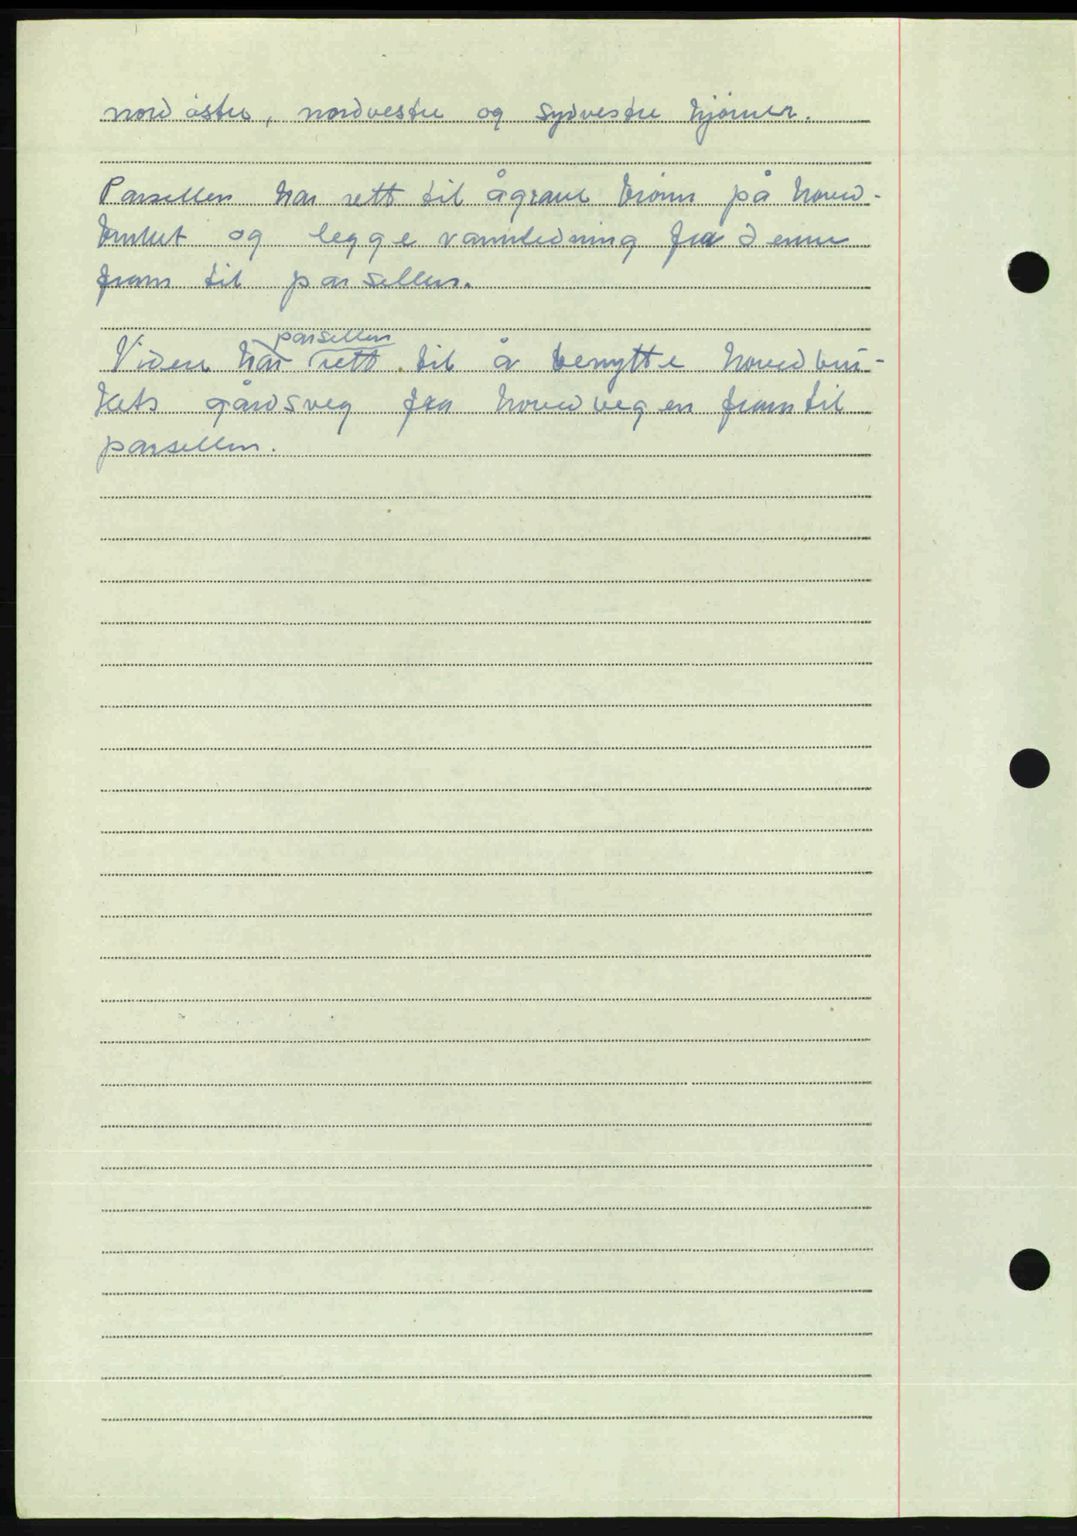 nordöstre, nordvestre og sydvestre hjörner.
Parsellen har rett til å grave brönn på hoved-
bruket og legge vannledning fra denne
fram til parsellen.
parsellen
Videre har rett til å benytte hovedbru-
kets gårdsveg fra hovedvegen fram til
parsellen.